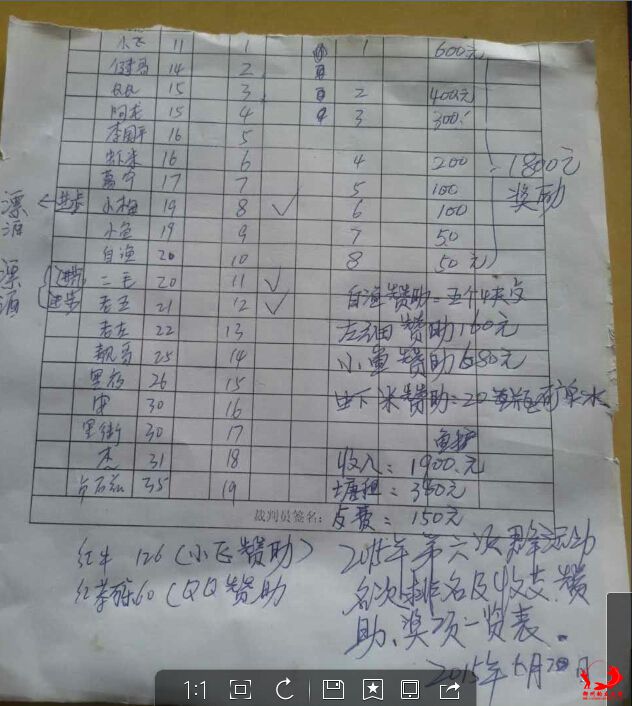 小飞 11 1 1 600元
健哥 14 2
QQ 15 3 2 400元
阿龙 15 4 3 300
李国平 16 5
虾米 16 6 4 200 1800元
17 7 5 100 奖励
漂 进步 小梅 19 8 ✓ 6 100
酒 小鱼 19 9 7 50
自渔 20 10 8 50元
漂 进步 二毛 20 11 ✓
酒 进步 老五 21 12 ✓ 自渔赞助=五个4夹
老左 22 13 赞助160元
靓哥 25 14 小鱼赞助680元
26 15
30 16 虾米赞助=20
黑街 30 17 鱼护
杰 31 18 收入：1900.元
35 19 塘租：380元
裁判员签名： 皮费＝150元
红牛 126（小飞赞助）
红茶 60（QQ赞助
2015年第六次群活动
名次排名及收支.赞
助、奖项一览表.
2015年6月20日
1:1